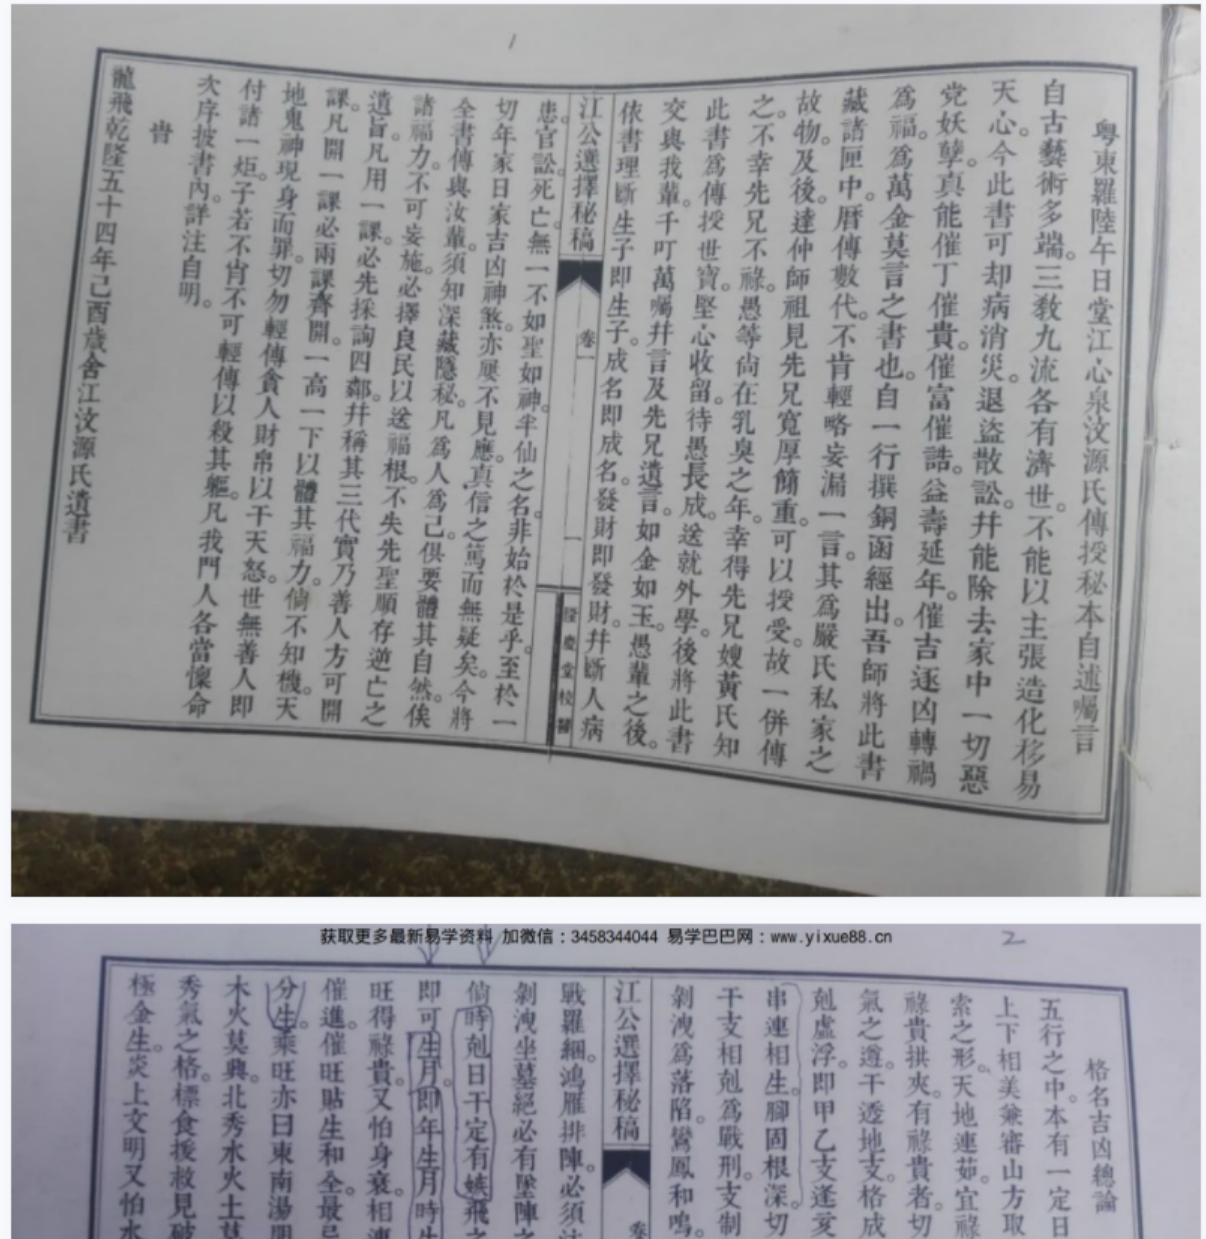 1
粵東羅陸午日堂江心泉汶源氏傳授秘本自述囑言
自古藝術多端。三教九流各有濟世。不能以主張造化移易
天心。今此書可却病消災。退盜散訟。幷能除去家中一切惡
党妖孽。真能催丁催貴。催富催誥。益壽延年。催吉逐凶轉禍
爲福。爲萬金莫言之書也。自一行撰銅函經出。吾師將此書
藏諸匣中。曆傳數代。不肯輕略妄漏一言。其爲嚴氏私家之
故物。及後。達仲師祖見先兄寬厚簡重。可以授受。故一併傳
之。不幸先兄不祿。愚等尚在乳臭之年。幸得先兄嫂黃氏知
此書爲傳授世寶。堅心收留。待愚長成。送就外學。後將此書
交與我輩。千叮萬囑幷言及先兄遺言。如金如玉。愚輩之後。
依書理斷生子即生子。成名即成名。發財即發財。幷斷人病
江公選擇秘稿
卷一
一
慶堂校
患。官訟。死亡。無一不如聖如神。半仙之名。非始於是乎。至於一
切年家日家吉凶神煞。亦屢不見應。真信之篤而無疑矣。今將
全書傳與汝輩。須知深藏隱秘。凡爲人爲己。俱要體其自然。俟
諸福力。不可妄施。必擇良民以送福根。不失先聖順存逆亡之
遺旨。凡用一課。必先採詢四鄰。幷稱其三代實乃善人。方可開
課。凡開一課必兩課齊開。一高一下以體其福力。倘不知機。天
地鬼神現身而罪。切勿輕傳貪人財帛以干天怒。世無善人即
付諸一炬。子若不肖不可輕傳以殺其軀。凡我門人各當懷命
次序披書內。詳注自明。
旹
龍飛乾隆五十四年己酉歲舍江汶源氏遺書
获取更多最新易学资料 加微信：3458344044 易学巴巴网：www.yixue88.cn
2
格名吉凶總論
五行之中。本有一定日
上下相美兼審山方取
索之形。天地連茹。宜祿
祿貴拱夾。有祿貴者。切
氣之遵。干透地支。格成
剋虛浮。即甲乙支逢亥
串連相生。腳固根深。切
干支相剋爲戰刑。支制
剝洩爲落陷。鸞鳳和鳴。
江公選擇秘稿
卷
戰羅綑。鴻雁排陣。必須
剝洩坐墓絕必有墜陣之
倘時剋日干定有嫉飛之
即可生月。即年生月時生
旺得祿貴。又怕身衰。相連
催進。催旺貼生和全。最忌
分生。乘旺亦曰東南湯
木火莫與。北秀水火土莫
秀氣之格。標食援救見破
極金生。炎上文明又怕水